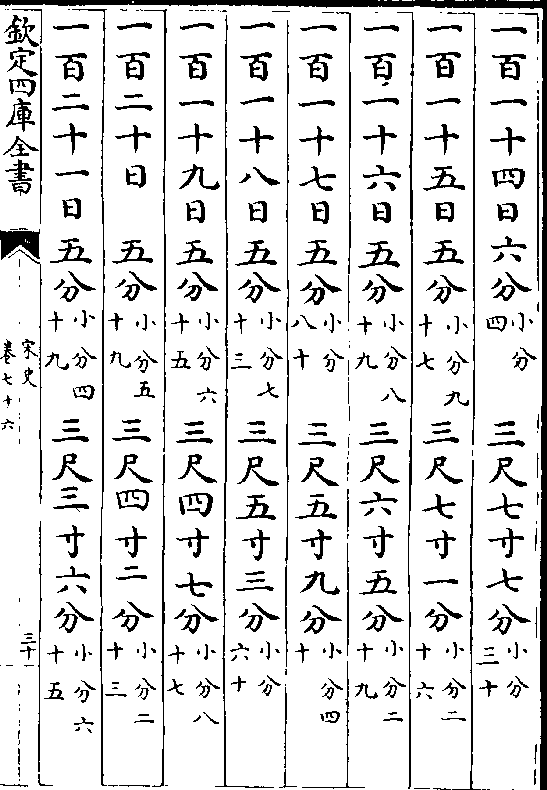 一百一十四日六分小分四三尺七寸七分小分三十
一百一十五日五分小分九十七三尺七寸一分小分二十六
一百一十六日五分小分八十九三尺六寸五分小分二十九
一百一十七日五分小分八十三尺五寸九分小分四十
一百一十八日五分小分七十三三尺五寸三分小分六十
一百一十九日五分小分六十五三尺四寸七分小分八十七
一百二十日五分小分五十九三尺四寸二分小分二十三
一百二十一日五分小分四十九三尺三寸六分小分六十五
欽定四庫全書
宋史
卷七十六
三十